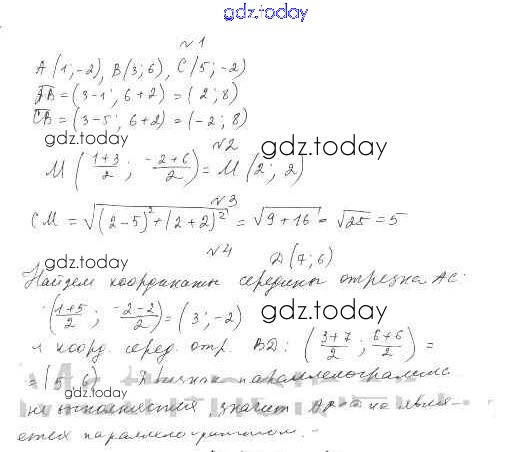 gdz.today
№1
A(1;-2), B(3;6), C(5;-2)
AB = (3-1; 6+2) = (2; 8)
CB = (3-5; 6+2) = (-2; 8)
gdz.today
№2
gdz.today
M (1+3/2 ; -2+6/2) = M (2; 2)
№3
CM = √(2-5)²+(2+2)² = √9+16 = √25 = 5
№4
D(7;6)
gdz.today
gdz.today
Найдем координаты середины отрезка AC:
(1+5/2 ; -2-2/2) = (3; -2)
gdz.today
и коорд. серед. отр. BD: (3+7/2 ; 6+6/2) =
= (5; 6)
gdz.today
признак параллелограмма
не выполняется, значит не явля-
ется параллелограммом.
gdz.today